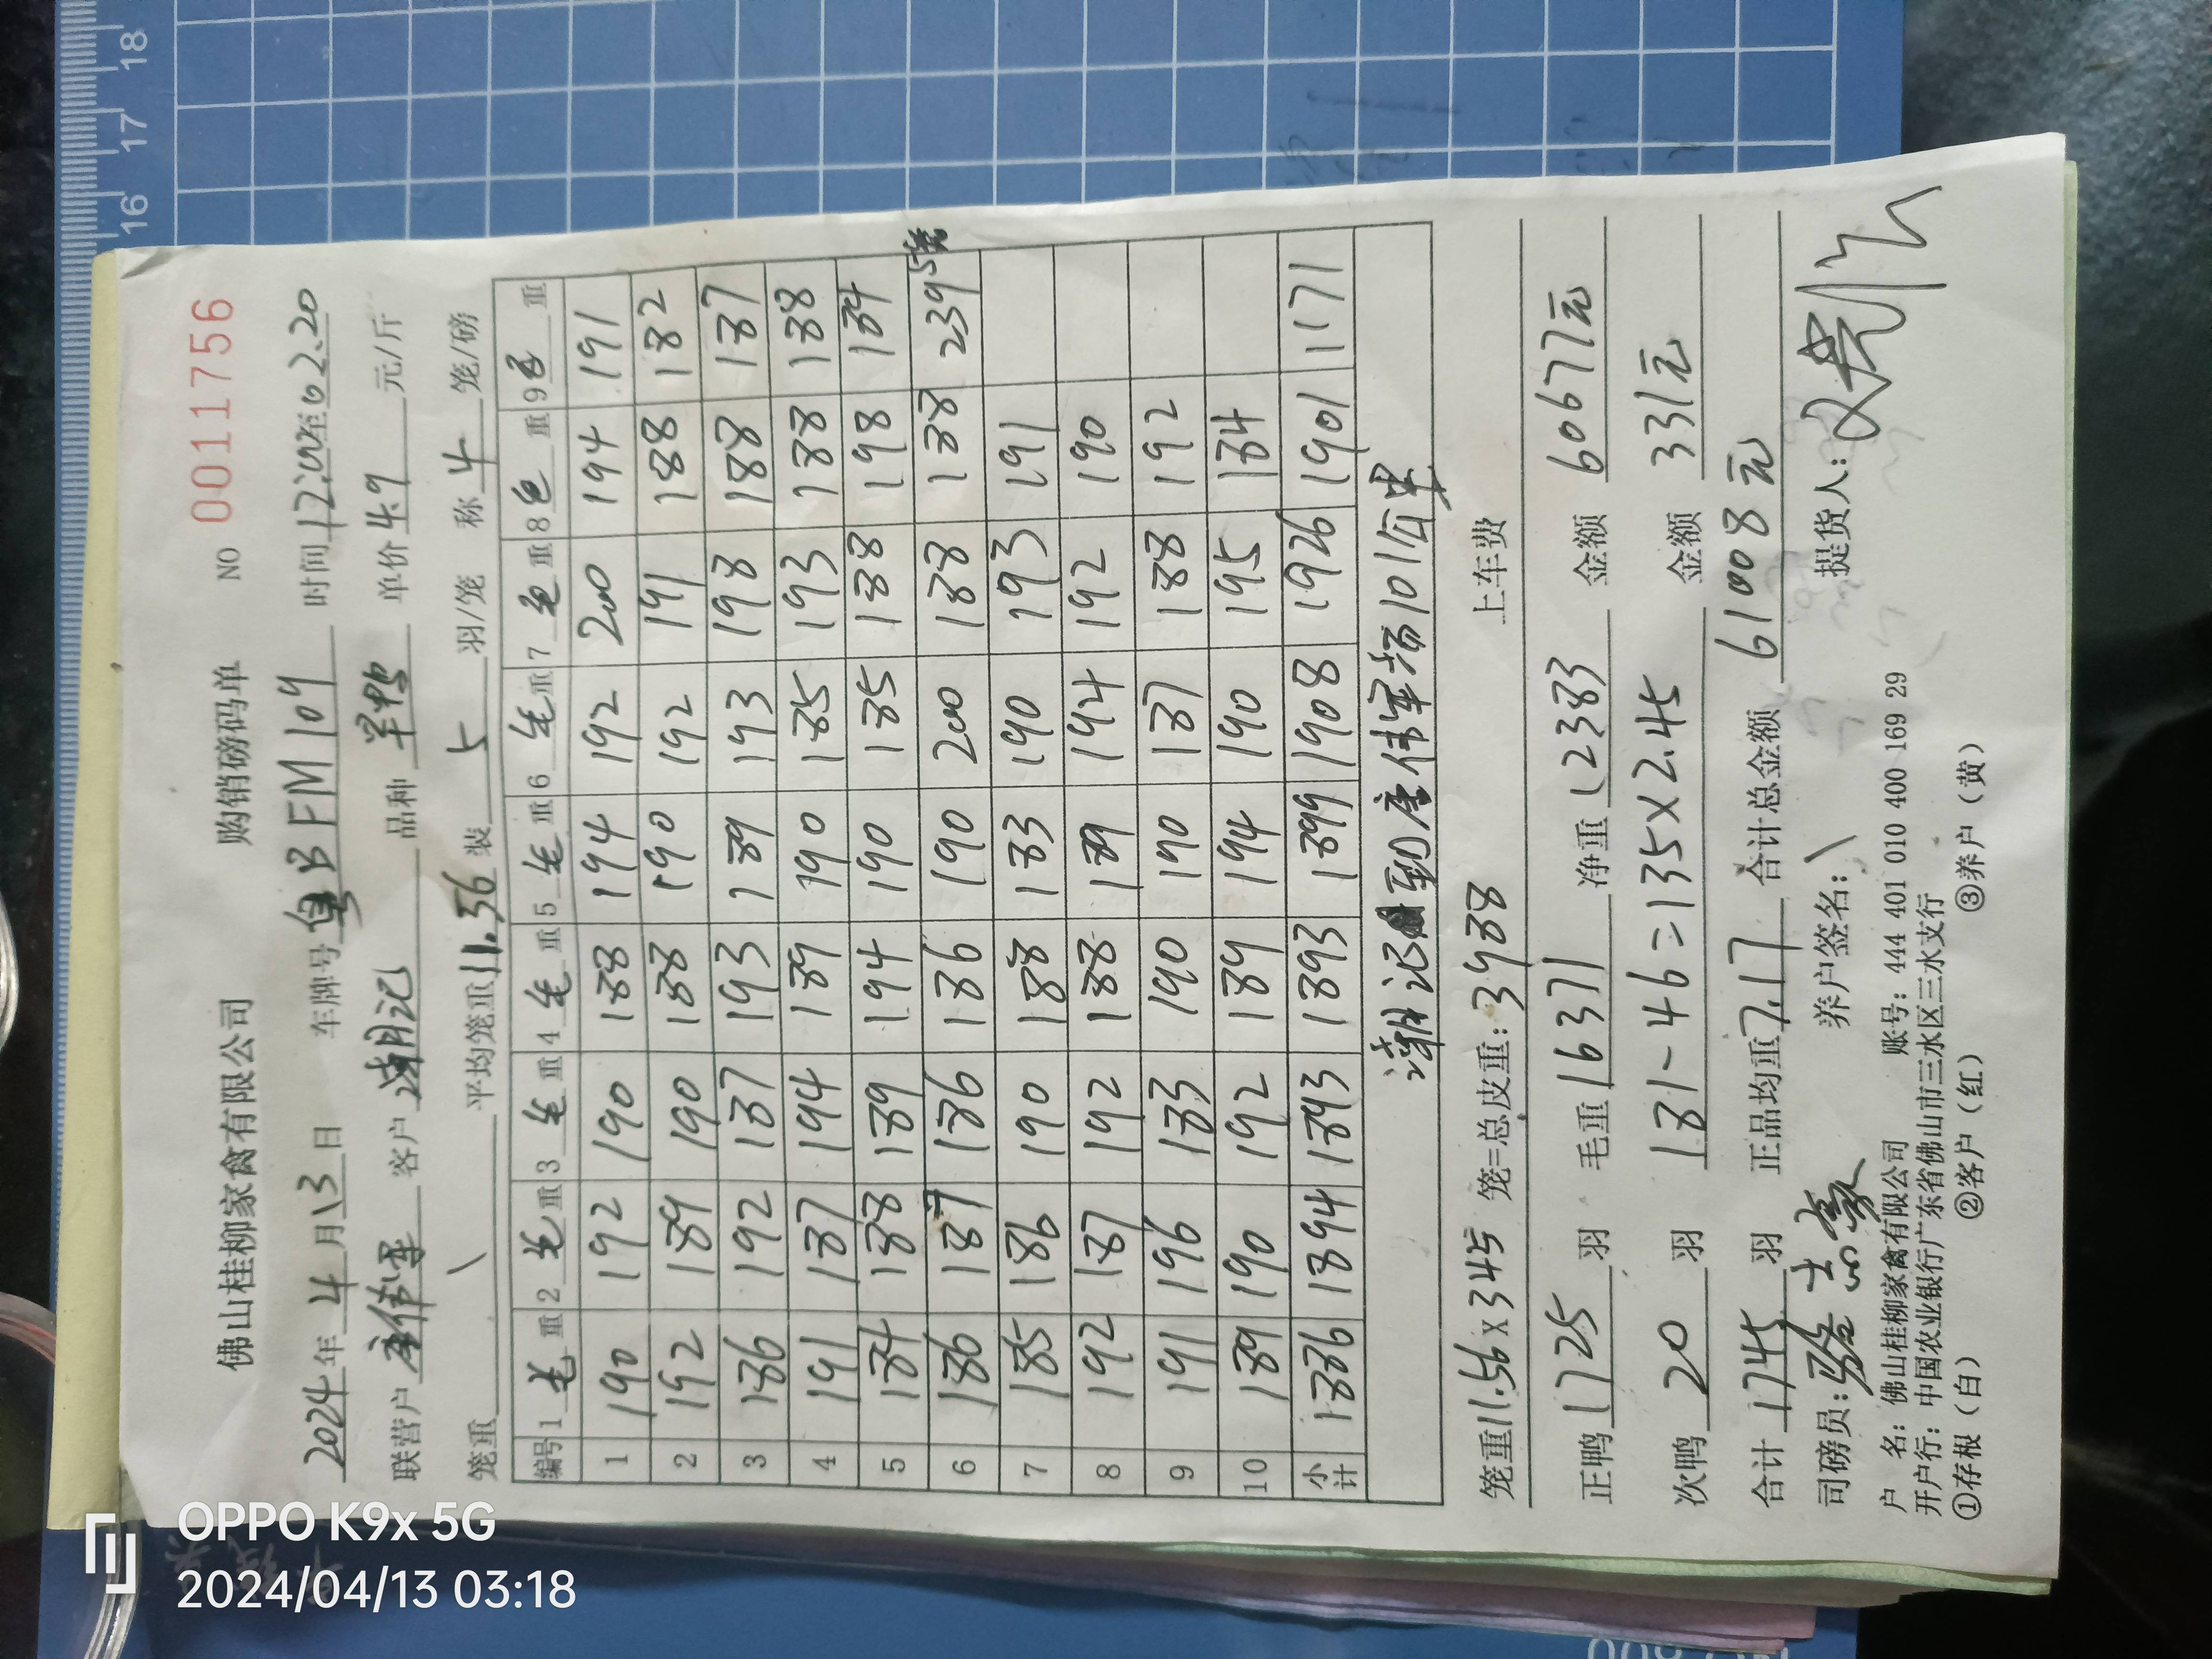 佛山桂柳家禽有限公司 购销磅码单 NO 0011756
2024年4月13日 车牌号 BFM109 时间12:00至02.20
联营户 唐伟军 客户 清记 品种 单价4.9 元/斤
笼重 \ 平均笼重11.56 装 5 羽/笼 称 4 笼/磅
编号 1毛重 2毛重 3毛重 4毛重 5毛重 6毛重 7毛重 8毛重 9毛重
1 190 192 190 188 194 192 200 194 191
2 192 189 190 188 190 192 191 188 182
3 186 192 187 193 189 193 198 188 187
4 191 187 194 189 190 185 193 188 188
5 184 188 189 194 190 185 188 198 184
6 186 187 186 186 190 200 188 188 239 5笼
7 185 186 190 188 183 190 193 191
8 192 187 192 188 189 194 192 190
9 191 196 183 190 190 187 188 192
10 189 190 192 189 194 190 195 184
小计 1886 1894 1893 1893 1899 1908 1926 1901 1171
清记 到唐伟军场101公里
笼重11.56x345 笼=总皮重:3988 上车费
正鸭 1725 羽 毛重 16371 净重 12383 金额 60677元
次鸭 20 羽 181-46=135X2.45 金额 331元
合计 1745 羽 正品均重7.17 合计总金额 61008元
司磅员: 志豪 养户签名: \ 提货人:
户 名: 佛山桂柳家禽有限公司 账号: 444 401 010 400 169 29
开户行: 中国农业银行广东省佛山市三水区三水支行
①存根（白） ②客户（红） ③养户（黄）
16 17 18
OPPO K9x 5G
2024/04/13 03:18